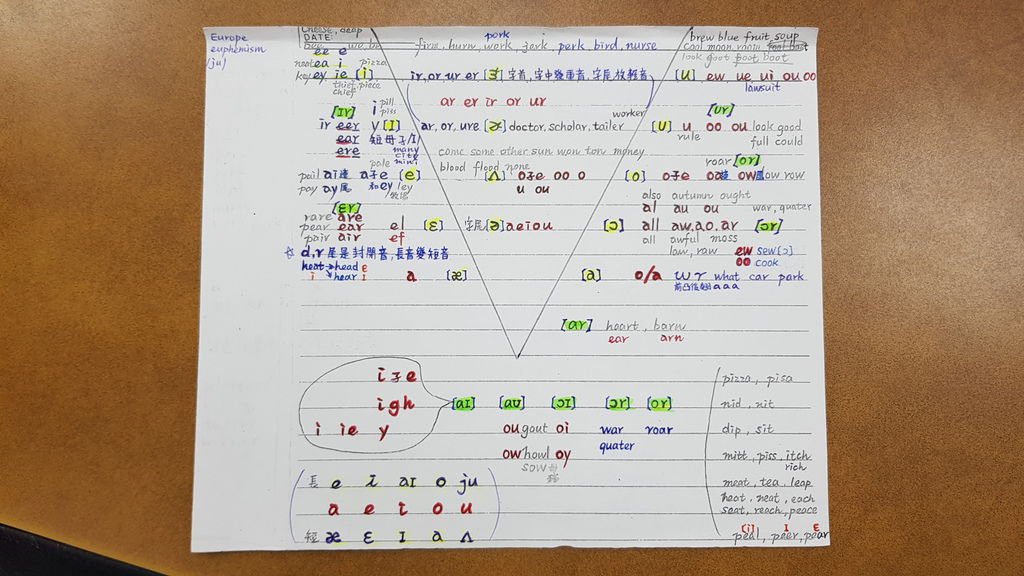 Europe
euphemism
(ju)
cheese, deep
DATE:
ee e
neet ea i pizza
key ey ie [i]
thief, piece
chief
pork
firm, burn, work, jerk, perk, bird, nurse
brew blue fruit soup
cool moon room
look foot
ir, or ur er [ɝ] 字首, 字中幾重音, 字尾放輕音
[u] ew ue ui ou oo
lawsuit
ar er ir or ur
[Ir] i pill
piss
worker
[ur]
ir eer y [I] ar, or, ure [ɚ] doctor, scholar, tailer
[U] u oo ou look good
rule full could
ear 短母子/I/
ere many
city
mini
come some other sun won ton money
blood flood none
roar [or]
pale
pail ai連 a子e [e] [Λ] o子e oo o
[o] o子e oa ow low row
pay ay尾 和ey ley
u ou
[ɛr]
also autumn ought
al au ou war, quater
rare are
pear ear el [ɛ] 字尾 [ə] a e i o u
[ɔ] all aw.ao.ar [ɔr]
pair air ef
all awful moss
law, raw ew sew[o]
oo cook
☆ d,r尾是封閉音,長音變短音
heat → head e
i hear i
a [æ]
[a] o/a w r what car park
a a a
[ar] heart, barn
ear arn
i 子 e
igh
i ie y
[aI] [aʊ] [ɔI] [ɔr] [or]
ou gout oi war roar
quater
ow howl oy
sow 母
長 e i aI o ju
a e i o u
短 æ ɛ I a Λ
pizza, pisa
nid, nit
dip, sit
mitt, piss, itch
rich
meat, tea, leap
heat, neat, each
seat, reach, peace
[i] I ɛ
peal, peer, pear